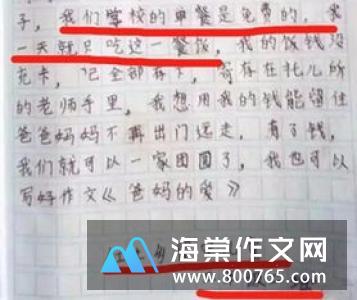 子，我们学校的早餐是免费的，我
一天就只吃这一餐饭，我的饭钱没
花卡，己全部存下，寄存在托儿所
的老师手里，我想用我的钱能留住
爸爸妈妈不再出门远走，有了钱，
我们就可以一家团圆了，我也可以
写好作文《爸妈的爱》
海棠作文网
www.800765.com